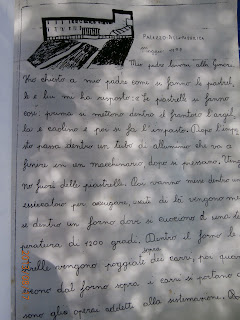 PALAZZO
Maggio
Mio padre lavora alla
Ho chiesto a mio padre come si fanno le piastrel
le e lui mi ha risposto: "Le piastrelle si fanno
così: prima si mettono dentro il frantoio l'argil
la e caolino e poi si fa l'impasto. Dopo l'impa
sto passa dentro un tubo di alluminio che va a
finire in un macchinario dopo si pressano. Vengo
no fuori delle piastrelle. Poi vanno messe dentro un
essiccatoio per asciugare, usciti da lì vengono mes
se dentro un forno dove si cuociono
peratura di 1200 gradi. Dentro il forno le
strelle vengono poggiate
scono dal forno sopra i carri si portano
sono gli operai addetti alla sistemazione.